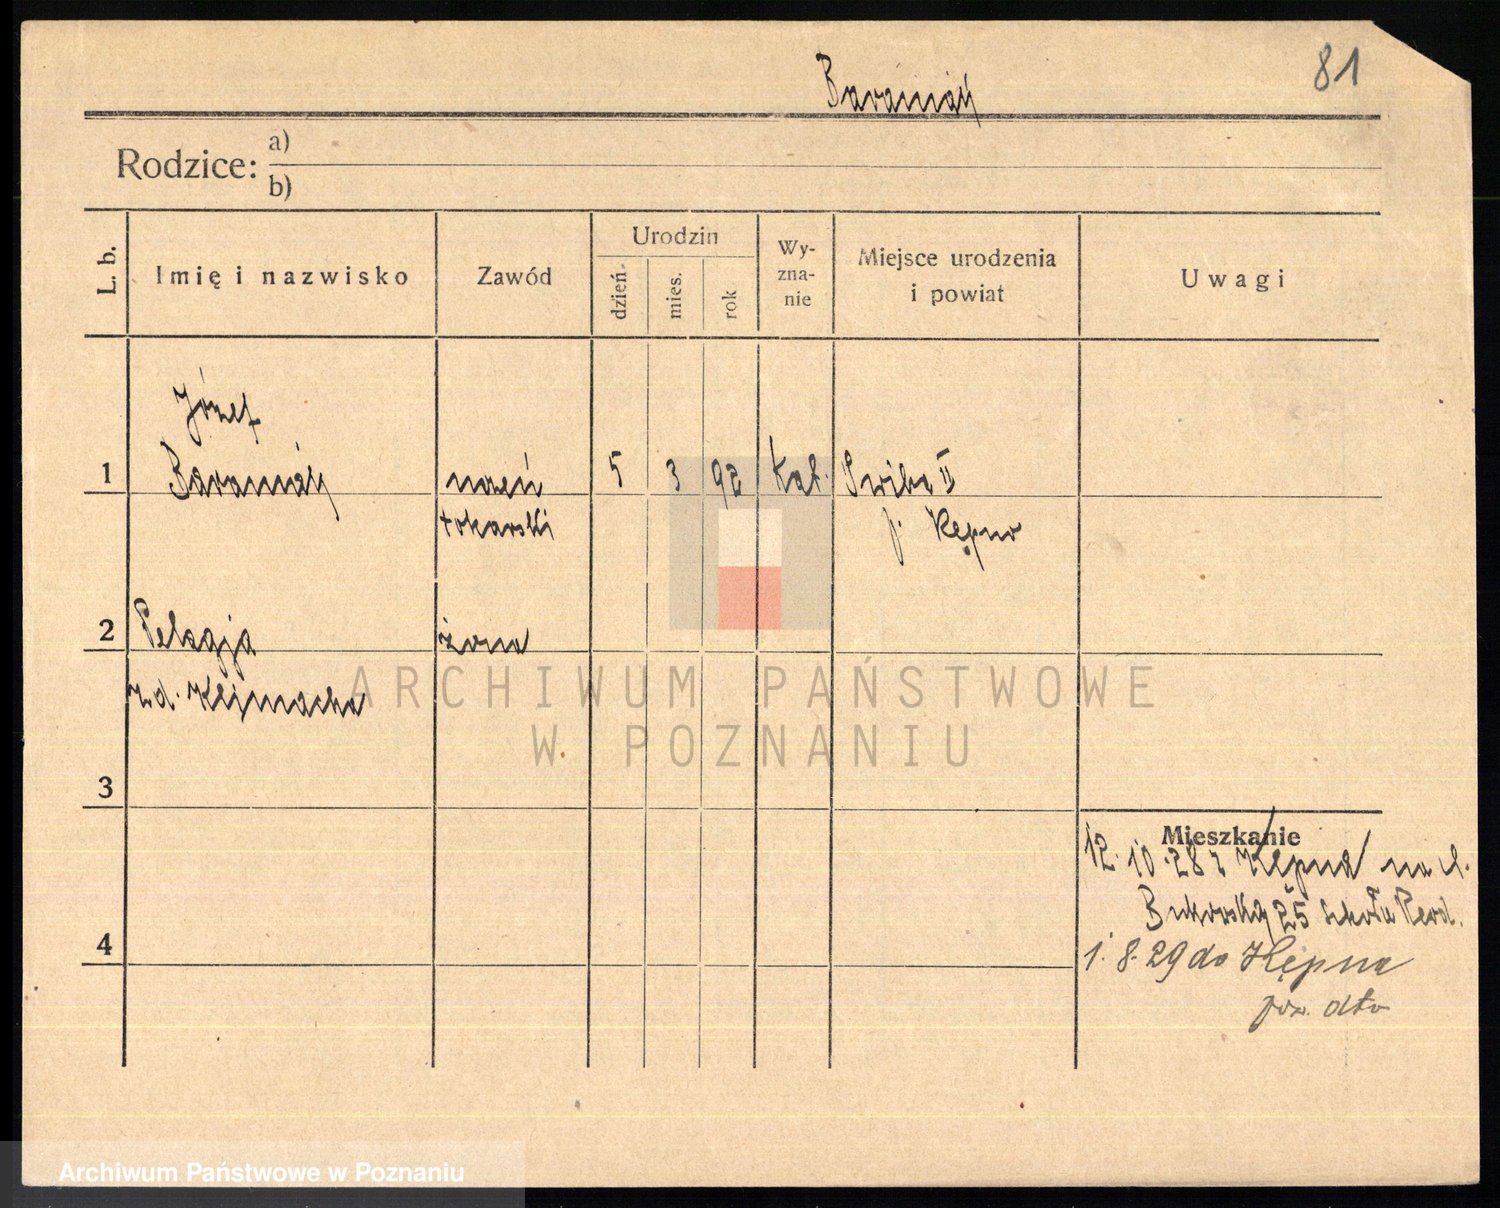 81
Baraniak
Rodzice: a)
b)
L. b.
Imię i nazwisko
Zawód
Urodzin
dzień
mies.
rok
Wy-
zna-
nie
Miejsce urodzenia
i powiat
Uwagi
Józef
1 Baraniak uczeń 5 3 92 kat. Świba II
tokarski p. Kępno
2 Pelagja żona
z d. Klimacka
ARCHIWUM PAŃSTWOWE
W POZNANIU
3
Mieszkanie
12. 10. 28 z Kępna na ul.
Bukowską 25
4
1. 8. 29 do Kępna
pow. dto
Archiwum Państwowe w Poznaniu